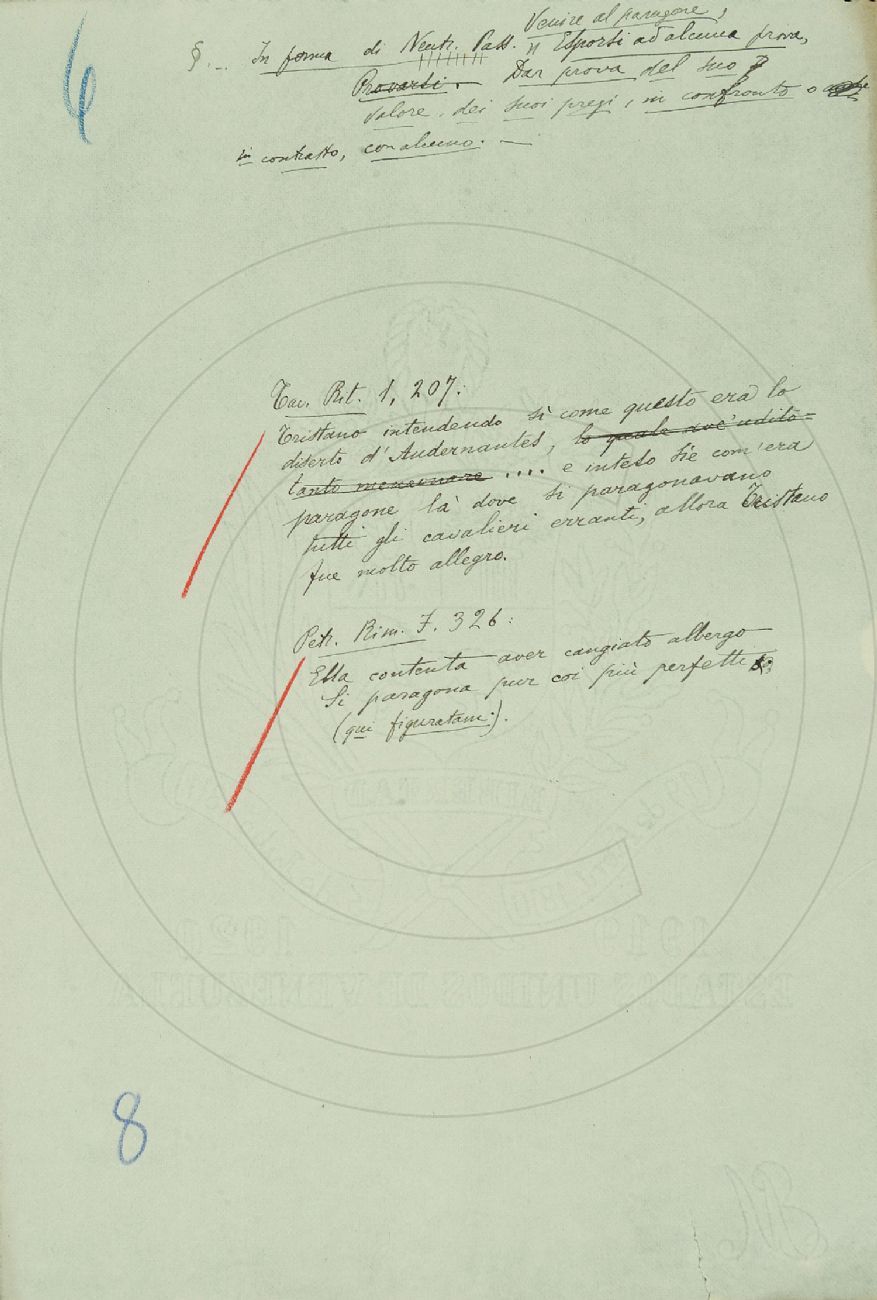 6
Venire al paragone,
§. .. In forma di Neutr. Pass. n Esporsi ad alcuna prova,
Provarsi. Dar prova del suo
valore, dei suoi pregi, in confronto o
in contrasto, con alcuno. —
Tav. Rit. 1, 207:
Tristano intendendo sì come questo era lo
diserto d'Andernantes, lo quale avè udito
tanto menzonare .... e inteso sie com'era
paragone là dove si paragonavano
tutti gli cavalieri erranti, allora Tristano
fue molto allegro.
Petr. Rim. F. 326:
Ella contenta aver cangiato albergo
Si paragona pur coi più perfetti
(qui figuratam.).
1919 1920
ESTADOS UNIDOS DE VENEZUELA
8